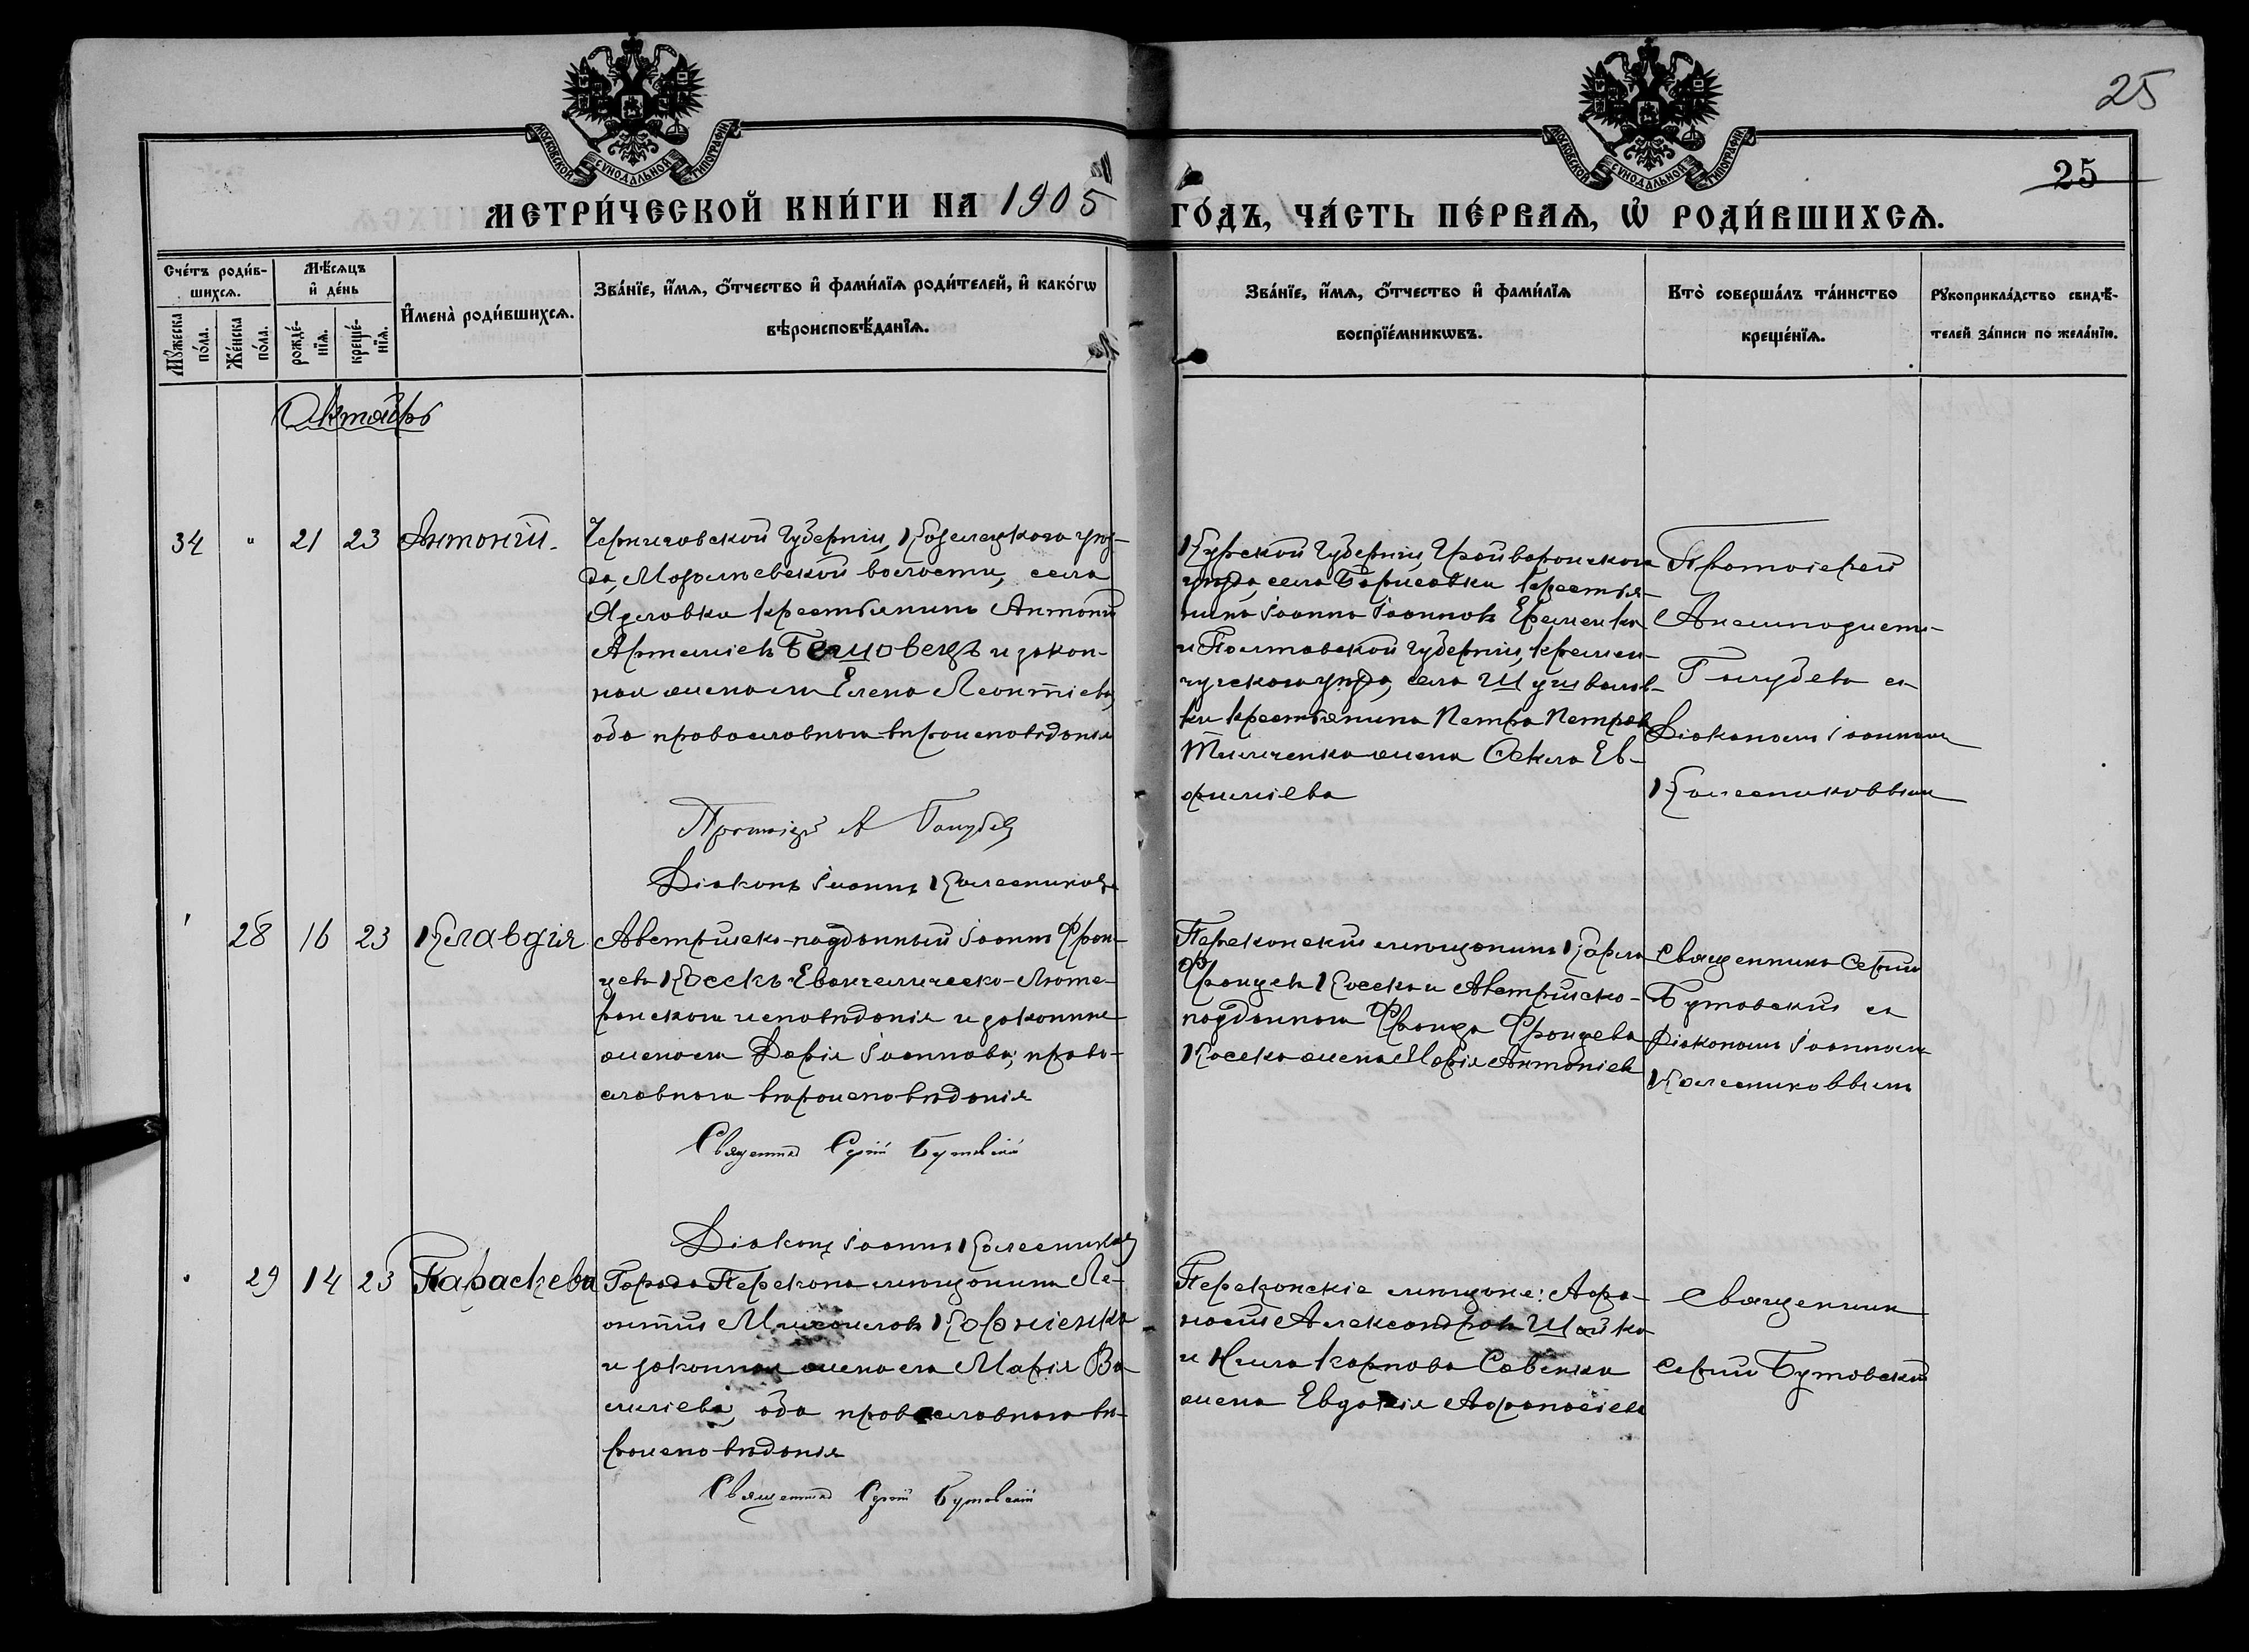 25
25
МОСКОВСКОЙ СѴНОДАЛЬНОЙ ТИПОГРАФІИ
МОСКОВСКОЙ СѴНОДАЛЬНОЙ ТИПОГРАФІИ
МЕТРИ́ЧЕСКОЙ КНИ́ГИ НА 1905 ГО́ДЪ, ЧА́СТЬ ПЕ́РВАѦ, Ѡ҆ РОДИ́ВШИХСѦ.
Сче́тъ роди́в-
шихсѧ.
Мꙋ́жеска
по́ла.
Же́нска
по́ла.
Мѣ́сѧцъ
и҆ де́нь
рожде́-
нїѧ.
креще́-
нїѧ.
И҆мена̀ роди́вшихсѧ.
Зва́нїе, и҆́мѧ, ѻ҆́тчество и҆ фами́лїѧ роди́телей, и҆ како́гѡ
вѣроисповѣ́данїѧ.
Зва́нїе, и҆́мѧ, ѻ҆́тчество и҆ фами́лїѧ
воспрїе́мникѡвъ.
Кто̀ соверша́лъ та́инство
креще́нїѧ.
Рꙋкоприкла́дство свидѣ́-
телей за́писи по жела́нїю.
Октябрь
34 " 21 23 Антоній.
Черниговской губерніи, Козелецкаго уѣз-
да, Мо
села
Ядловки крестьянинъ Антоній
Артеміевъ и закон-
ная жена его Елена Леонтіева,
оба православнаго вѣроисповѣданія
Протоіер А Голубев
Діаконъ Іоаннъ Колесниковъ
Курской губерніи, Грайворонскаго
уѣзда, села Борисовки крестья-
нинъ Іоаннъ Іоанновъ Ефименко
и Полтавской губерніи, Кремен-
чугскаго уѣзда, села
ки крестьянина Петра Петрова
жена Ев-
фиміева
Протоіерей
Анемподистъ
Голубевъ съ
Діакономъ Іоанномъ
Колесниковымъ
28 16 23 Клавдія
Австрійско-подданный Іоаннъ Фран-
цевъ Коссекъ Евангелическо-Люте-
ранскаго исповѣданія и законная
жена его Дарія Іоаннова, право-
славнаго вѣроисповѣданія
Священникъ Сергій Бутовскій
Діаконъ Іоаннъ Колесниковъ
Перекопскій мѣщанинъ Карлъ
Францевъ Коссекъ и Австрійско-
подданнаго Франца Францева
Коссека жена Марія Антоніева
Священникъ Сергій
Бутовскій съ
Діакономъ Іоанномъ
Колесниковымъ
29 14 23 Параскева
Города Перекопа мѣщанинъ Ле-
онтій Михаиловъ Корніенко
и законная жена его Марія Ва
силіева, оба православнаго вѣ-
роисповѣданія
Священникъ Сергій Бутовскій
Перекопскіе мѣщане: Афа-
насій Александровъ Шайко
и Нила Карпова Савенка
жена Евдокія Афанасіева
Священникъ
Сергій Бутовскій